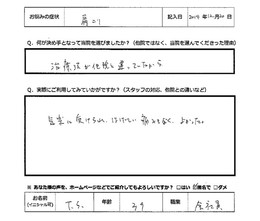 お悩みの症状 肩コリ 記入日
Q. 何が決め手となって当院を選びましたか?(他院ではなく、当院を選んでくださった理由)
治療法が他院と違っていたから
Q. 実際にご利用してみていかがですか?(スタッフの対応、他院との違いなど)
気楽に受けられ、痛みもなく、よかった。
※ あなた様の声を、ホームページなどでご紹介してもよろしいですか? □はい 匿名で □ダメ
お名前(イニシャル可) T.S. 年齢 39 職業 会社員